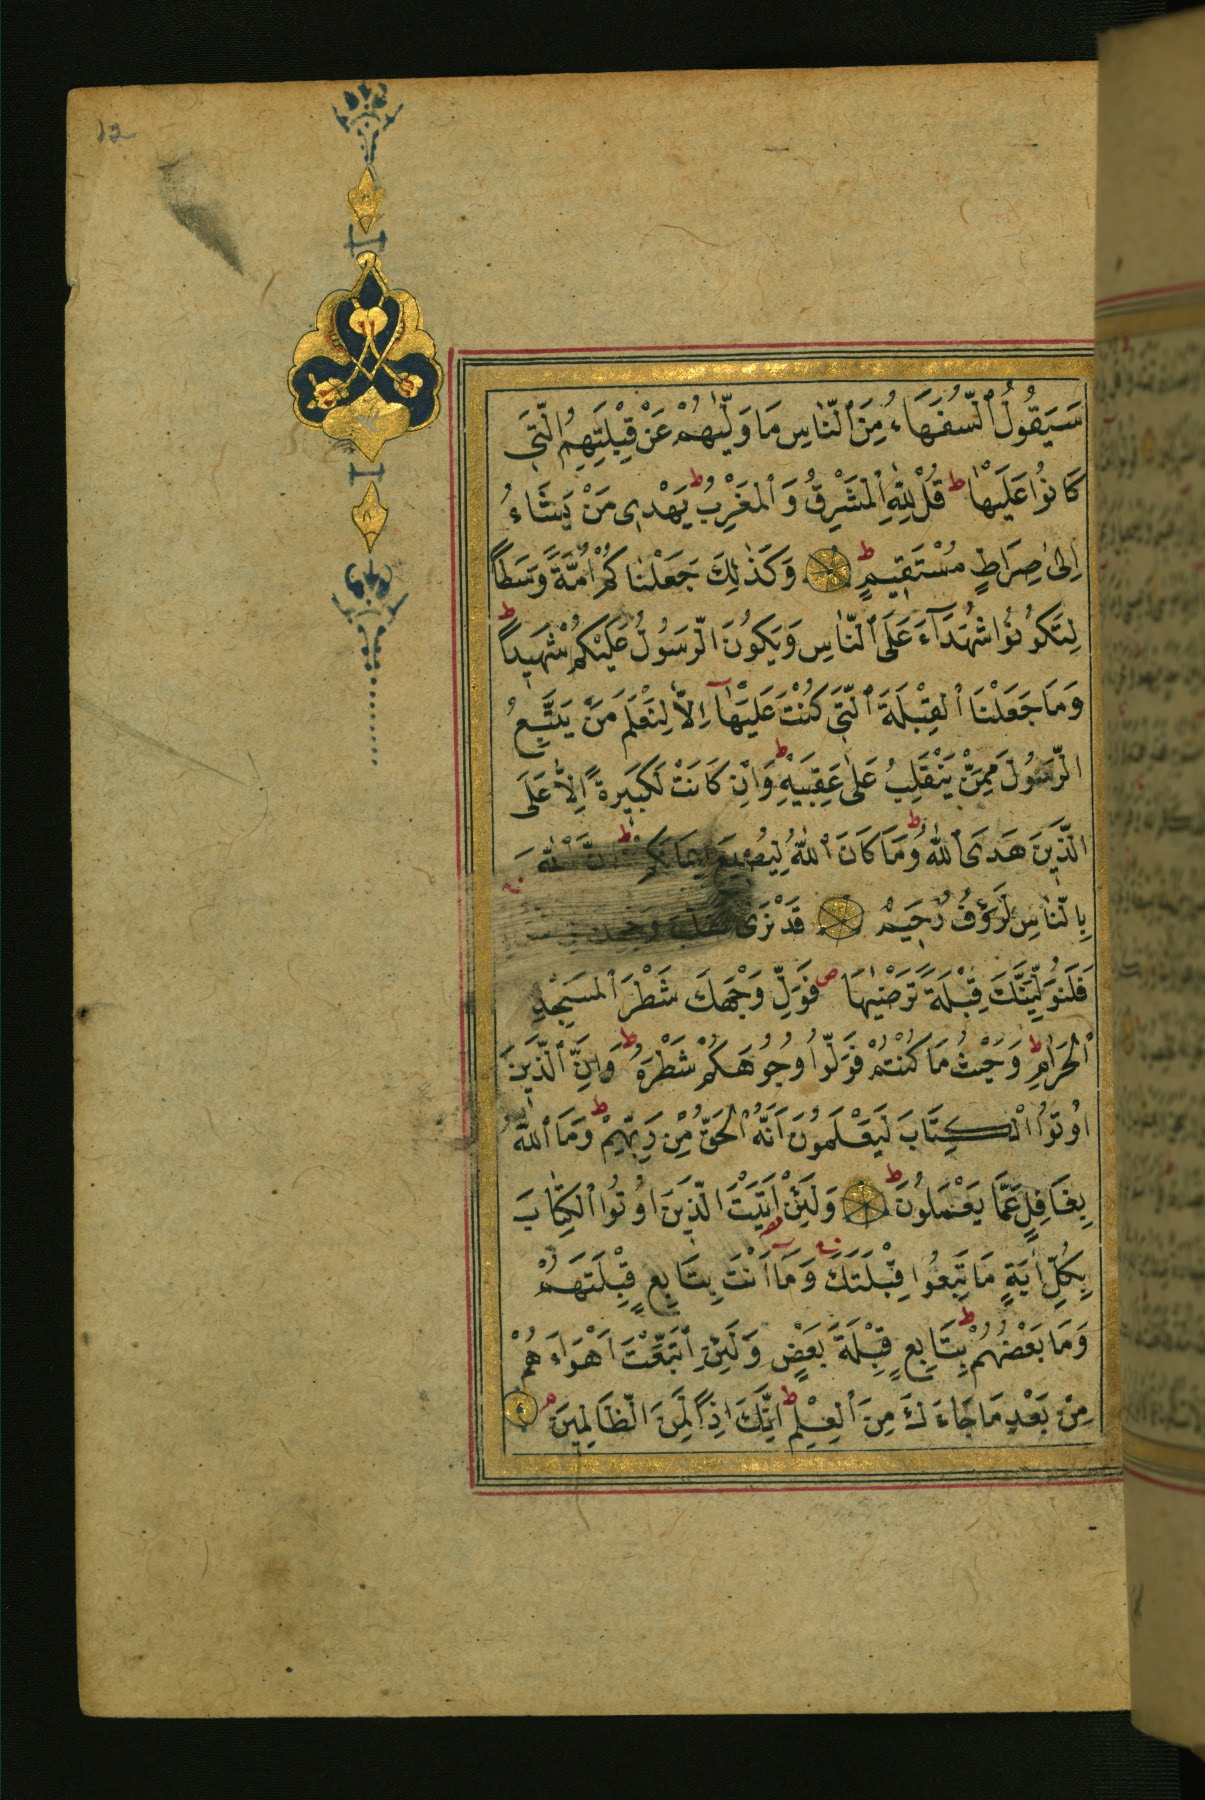 12
سَيَقُولُ ٱلسُّفَهَاءُ مِنَ ٱلنَّاسِ مَا وَلّٰيهُمْ عَنْ قِبْلَتِهِمُ الَّتِى
كَانُوا عَلَيْهَا ط قُلْ لِلّٰهِ ٱلْمَشْرِقُ وَٱلْمَغْرِبُ ط يَهْدِى مَنْ يَشَاءُ
اِلٰى صِرَاطٍ مُسْتَقِيمٍ ط وَكَذٰلِكَ جَعَلْنَاكُمْ اُمَّةً وَسَطًا
لِتَكُونُوا شُهَدَآءَ عَلَى ٱلنَّاسِ وَيَكُونَ الرَّسُولُ عَلَيْكُمْ شَهِيدًا ط
وَمَا جَعَلْنَا ٱلْقِبْلَةَ ٱلَّتِى كُنْتَ عَلَيْهَآ اِلَّا لِنَعْلَمَ مَنْ يَتَّبِعُ
الرَّسُولَ مِمَّنْ يَنْقَلِبُ عَلٰى عَقِبَيْهِ ط وَاِنْ كَانَتْ لَكَبِيرَةً اِلَّا عَلَى
الَّذِينَ هَدَى ٱللّٰهُ ط وَمَا كَانَ ٱللّٰهُ لِيُضِيعَ اِيمَانَكُمْ ط اِنَّ ٱللّٰهَ
بِالنَّاسِ لَرَؤُفٌ رَحِيمٌ قَدْ نَرٰى تَقَلُّبَ وَجْهِكَ فِى
فَلَنُوَلِّيَنَّكَ قِبْلَةً تَرْضٰيهَا ص فَوَلِّ وَجْهَكَ شَطْرَ ٱلْمَسْجِدِ
ٱلْحَرَامِ ط وَحَيْثُ مَا كُنْتُمْ فَوَلُّوا وُجُوهَكُمْ شَطْرَهُ ط وَاِنَّ ٱلَّذِينَ
اُوتُوا ٱلْكِتَابَ لَيَعْلَمُونَ اَنَّهُ ٱلْحَقُّ مِنْ رَبِّهِمْ ط وَمَا ٱللّٰهُ
بِغَافِلٍ عَمَّا يَعْمَلُونَ ط وَلَئِنْ اَتَيْتَ الَّذِينَ اُوتُوا ٱلْكِتَابَ
بِكُلِّ اٰيَةٍ مَا تَبِعُوا قِبْلَتَكَ وَمَآ اَنْتَ بِتَابِعٍ قِبْلَتَهُمْ
وَمَا بَعْضُهُمْ بِتَابِعٍ قِبْلَةَ بَعْضٍ ط وَلَئِنِ ٱتَّبَعْتَ اَهْوَاءَهُمْ
مِنْ بَعْدِ مَا جَاءَكَ مِنَ ٱلْعِلْمِ ط اِنَّكَ اِذًا لَمِنَ الظَّالِمِينَ م